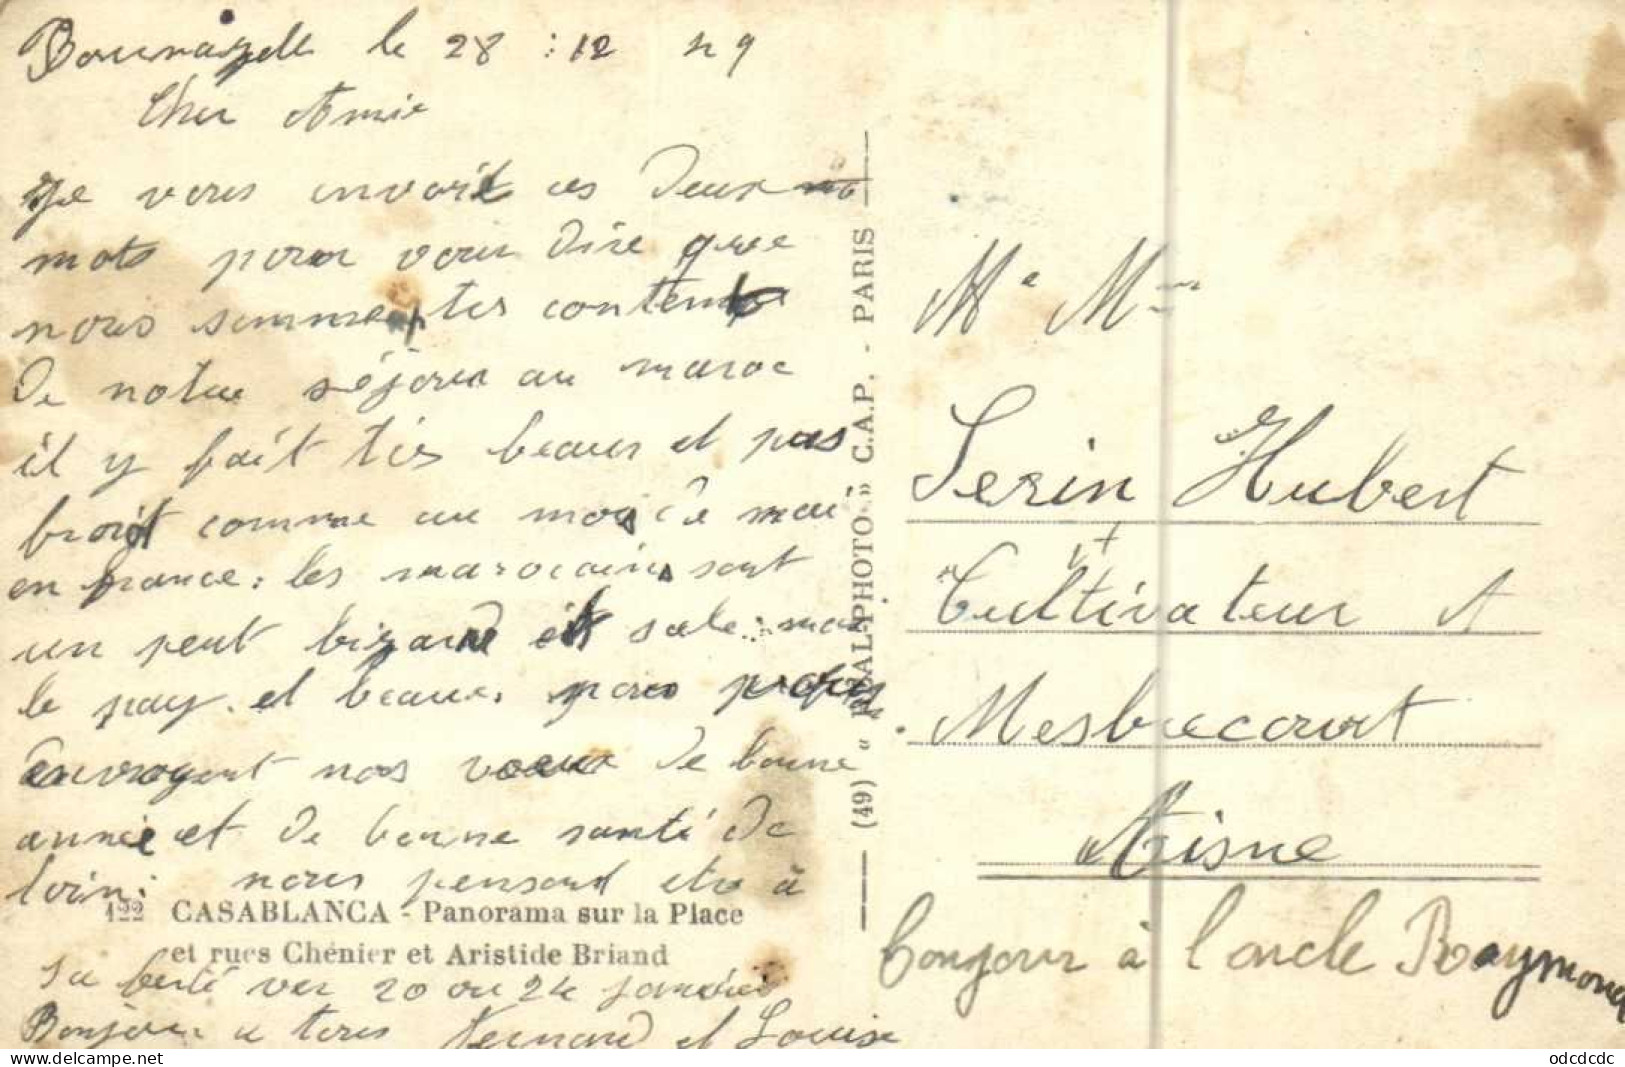 Bournazelle le 28 : 12 49
Cher Amie
Je vous envoit ces deux
mots pour vour dire que
nous sommes tes contents
de notre séjour au maroc
il y fait tes beaus et pas
broit comme au mois de mai
en france : les marocains sont
un peut bizard et sale : mai
le pay. et beaus. nous
envoyont nos voeux de bonne
année et de bonne santé de
loin : nous pensont etre à
122 CASABLANCA - Panorama sur la Place
et rues Chénier et Aristide Briand
La ferté ver 20 ou 24 janvier
Bonjour a tous Fernand et Louise
(49) « REAL-PHOTO » C.A.P. - PARIS
Me Mme
Serin Hubert
Cultivateur A
Mesbrecourt
Aisne
bonjour à l'oncle Raymond
odcdcdc